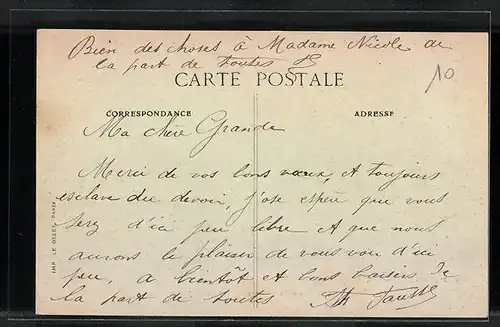 Bien des choses à Madame Nicole de
la part de toutes
CARTE POSTALE
10
CORRESPONDANCE
ADRESSE
Ma chère Grande
Merci de vos bons vœux, et toujours
esclave du devoir, j'ose espére que vous
serez d'ici peu libre et que nous
aurons le plaisir de vous voir d'ici
peu, a bientôt et bons baisers de
la part de toutes
IMP. LE DELEY, PARIS